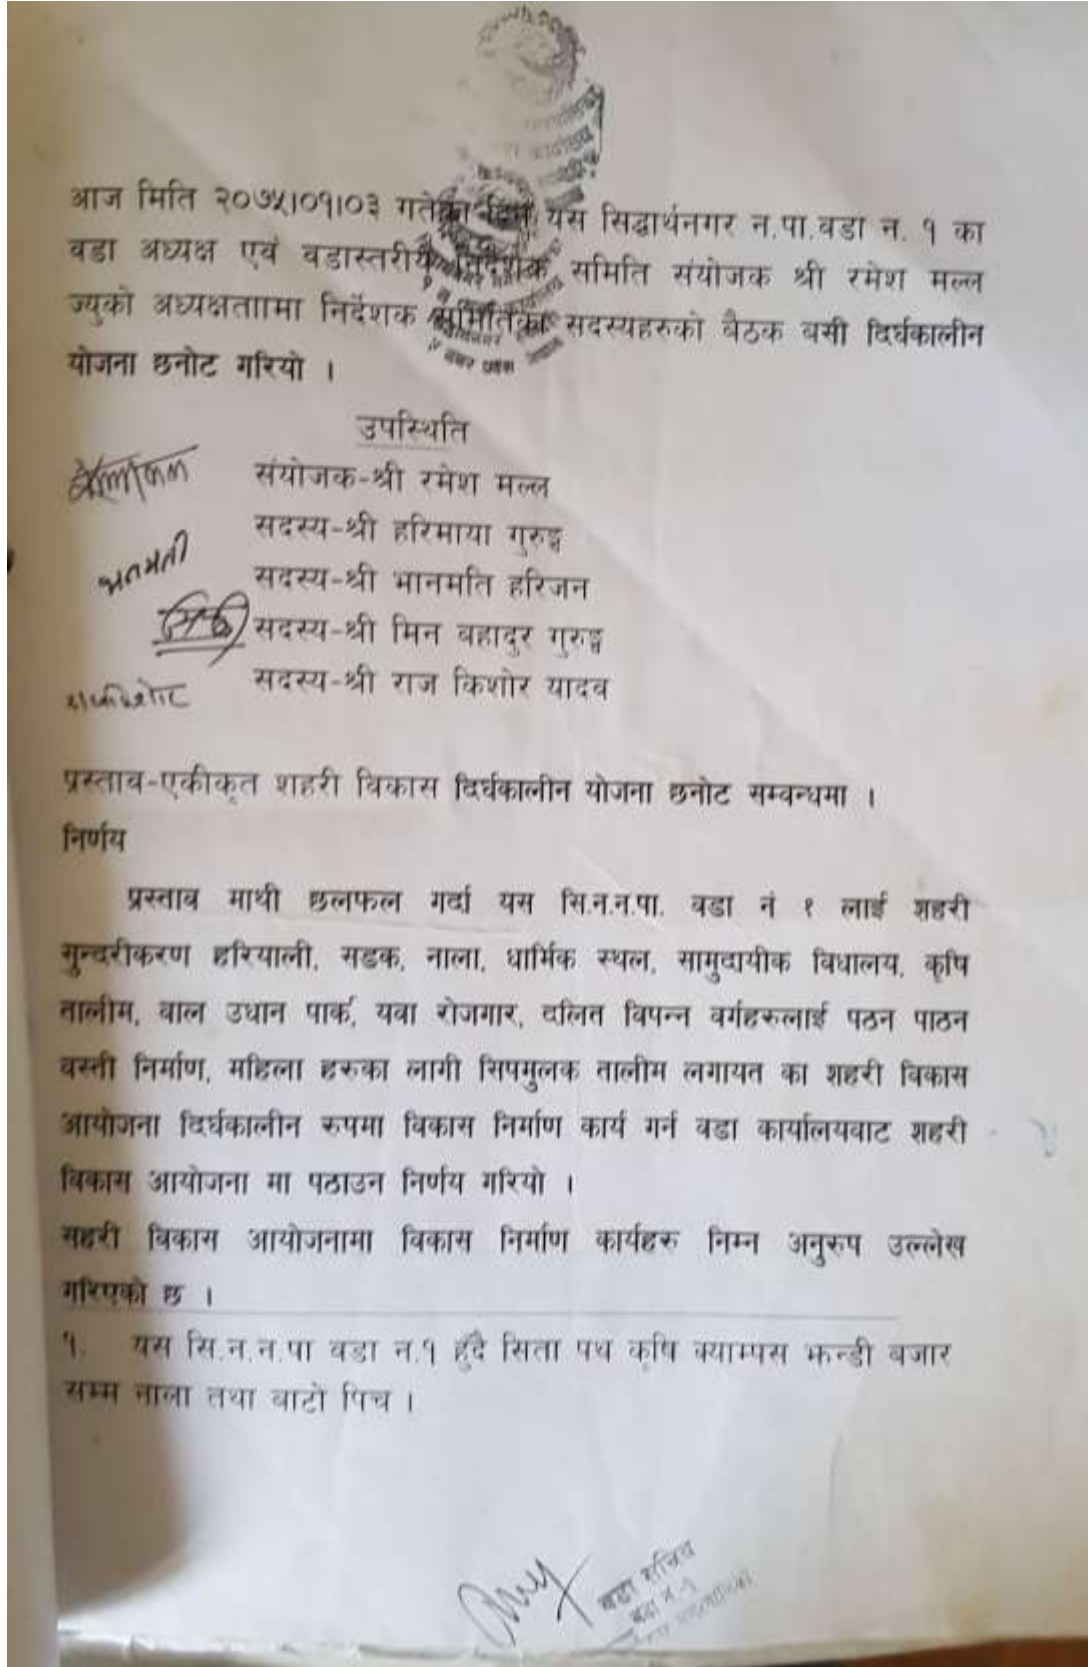 आज मिति २०७५।०१।०३ गतेका दिन यस सिद्धार्थनगर न.पा.वडा न. १ का
वडा अध्यक्ष एवं वडास्तरीय निर्देशक समिति संयोजक श्री रमेश मल्ल
ज्युको अध्यक्षताामा निर्देशक समितिका सदस्यहरुको बैठक बसी दिर्घकालीन
योजना छनोट गरियो ।
उपस्थिति
संयोजक-श्री रमेश मल्ल
सदस्य-श्री हरिमाया गुरुङ्ग
भानमती
सदस्य-श्री भानमति हरिजन
सदस्य-श्री मिन बहादुर गुरुङ्ग
सदस्य-श्री राज किशोर यादव
प्रस्ताव-एकीकृत शहरी विकास दिर्घकालीन योजना छनोट सम्वन्धमा ।
निर्णय
प्रस्ताव माथी छलफल गर्दा यस सि.न.न.पा. वडा नं १ लाई शहरी
सुन्दरीकरण हरियाली, सडक, नाला, धार्मिक स्थल, सामुदायीक विधालय, कृषि
तालीम, वाल उधान पार्क, यवा रोजगार, दलित विपन्न वर्गहरुलाई पठन पाठन
वस्ती निर्माण, महिला हरुका लागी सिपमुलक तालीम लगायत का शहरी विकास
आयोजना दिर्घकालीन रुपमा विकास निर्माण कार्य गर्न वडा कार्यालयवाट शहरी
विकास आयोजना मा पठाउन निर्णय गरियो ।
सहरी विकास आयोजनामा विकास निर्माण कार्यहरु निम्न अनुरुप उल्लेख
गरिएको छ ।
१. यस सि.न.न.पा वडा न.१ हुँदै सिता पथ कृषि क्याम्पस झन्डी बजार
सम्म नाला तथा बाटो पिच ।
वडा सचिव
वडा नं.-१